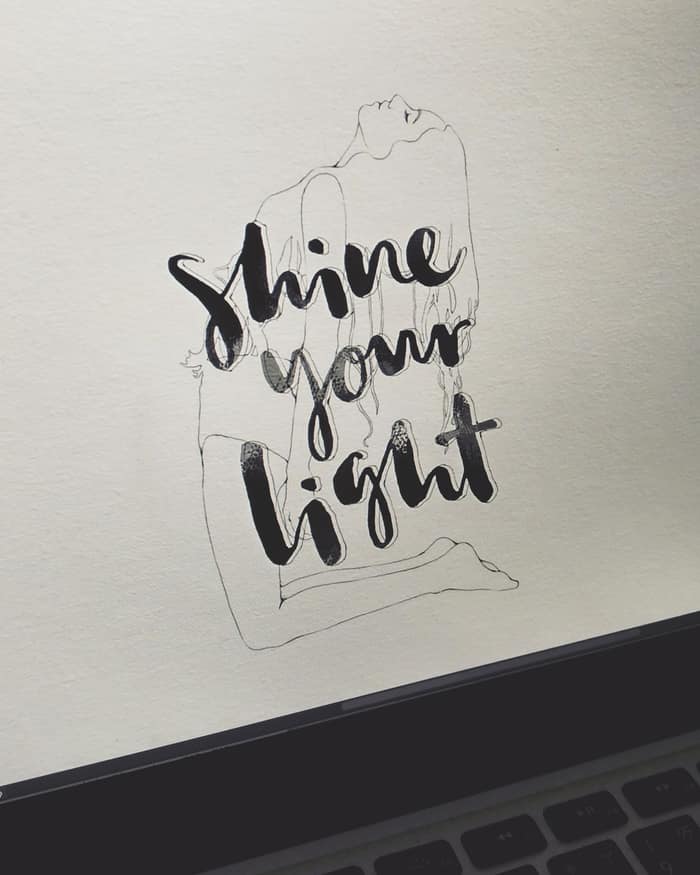 shine
your
light